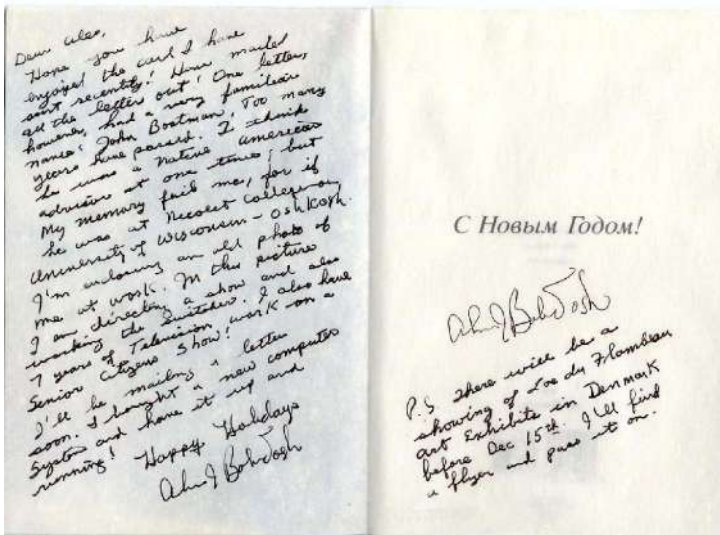 Dear
Hope you have
enjoyed the card I have
sent recently! Have mailed
all the letter out! One letter,
however, had a very familiar
name: John Boatman! Too many
years have passed. I think
he was a Native American
advisor at one time; but
My memory fails me, for if
he was at College or
University of Wisconsin - Oshkosh.
I'm enclosing an old photo of
me at work. In this picture
I am directing a show and also
working the switcher. I also have
7 years of Television work on a
Senior Citizens Show!
I'll be mailing a letter
soon. I bought a new computer
System and have it up and
running!
Happy Holidays
С Новым Годом!
P.S There will be a
showing of Lac du Flambeau
art Exhibits in Denmark
before Dec 15th. I'll find
a flyer and pass it on.